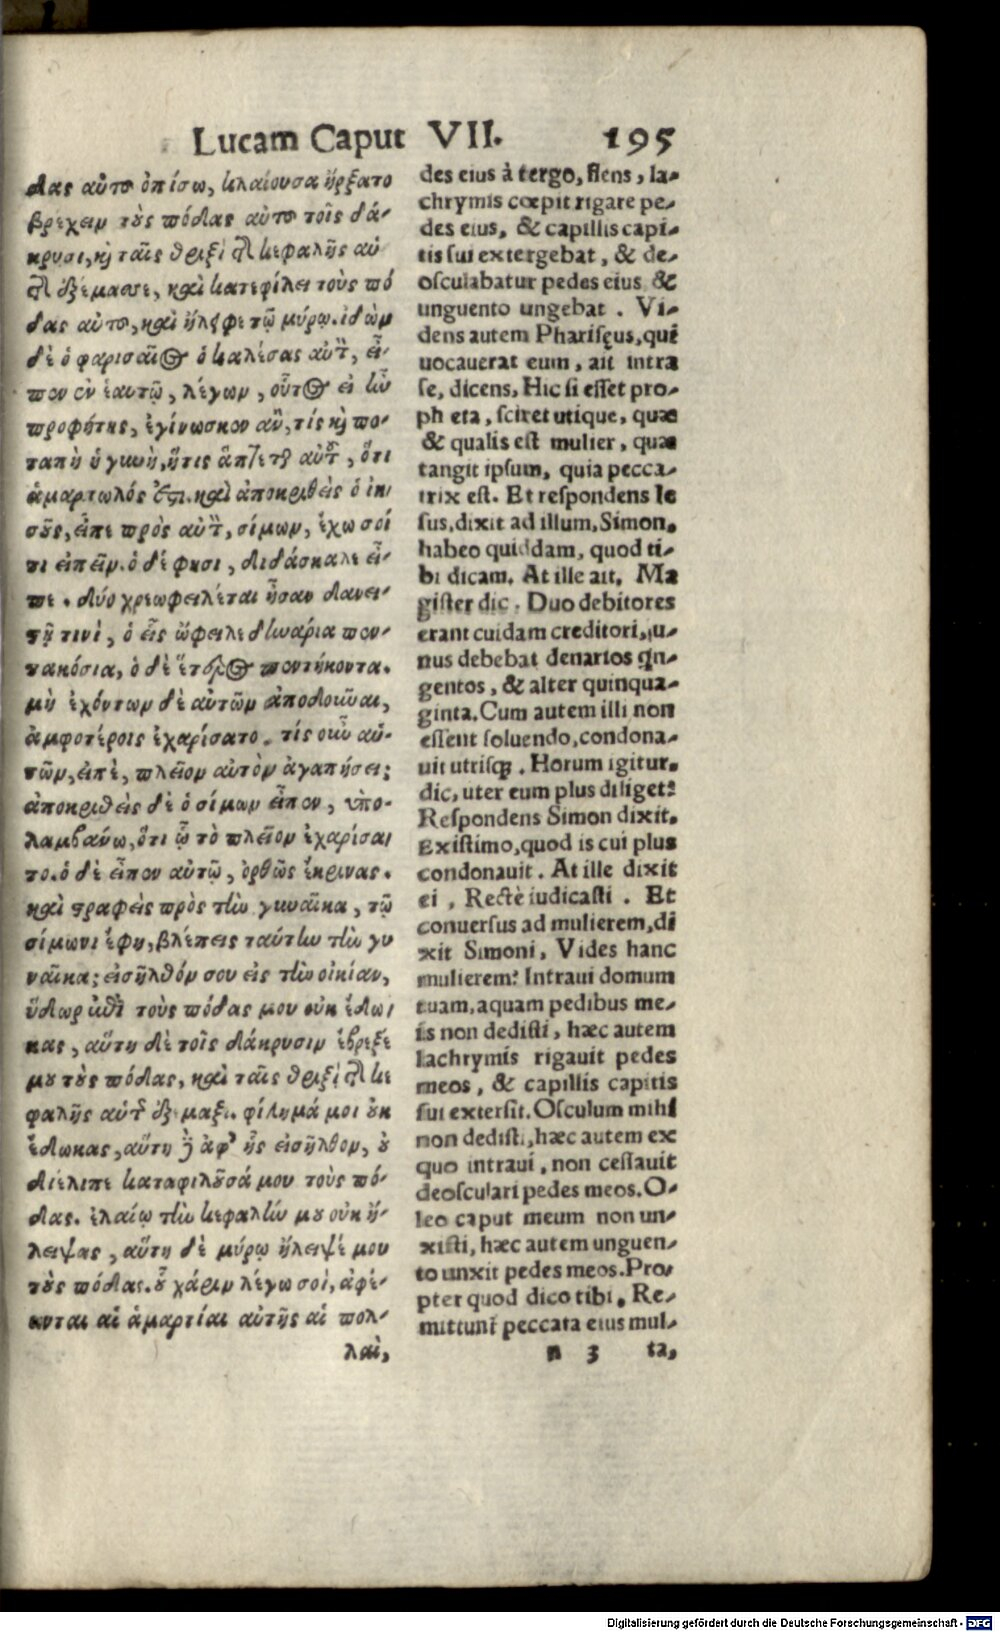 Lucam Caput VII. 195
δας αὐτοῦ ὀπίσω, κλαίουσα ἤρξατο
βρέχειν τοὺς πόδας αὐτοῦ τοῖς δά-
κρυσι, καὶ ταῖς θριξὶ τῆς κεφαλῆς αὑ
τῆς ἐξέμασσε, καὶ κατεφίλει τοὺς πό
δας αὐτοῦ, καὶ ἤλειφε τῷ μύρῳ. ἰδὼν
δὲ ὁ φαρισαῖος ὁ καλέσας αὐτὸν, εἶ-
πεν ἐν ἑαυτῷ, λέγων, οὗτος εἰ ἦν
προφήτης, ἐγίνωσκεν ἂν, τίς καὶ πο-
ταπὴ ἡ γυνὴ, ἥτις ἅπτεται αὐτοῦ, ὅτι
ἁμαρτωλός ἐστι. καὶ ἀποκριθεὶς ὁ ἰη
σοῦς, εἶπε πρὸς αὐτὸν, σίμων, ἔχω σοί
τι εἰπεῖν. ὁ δέ φησι, διδάσκαλε εἰ-
πέ. δύο χρεωφειλέται ἦσαν δανει-
στῇ τινὶ, ὁ εἷς ὤφειλε δηνάρια πεν-
τακόσια, ὁ δὲ ἕτερος πεντήκοντα.
μὴ ἐχόντων δὲ αὐτῶν ἀποδοῦναι,
ἀμφοτέροις ἐχαρίσατο. τίς οὖν αὐ-
τῶν, εἰπὲ, πλεῖον αὐτὸν ἀγαπήσει;
ἀποκριθεὶς δὲ ὁ σίμων εἶπεν, ὑπο-
λαμβάνω, ὅτι ᾧ τὸ πλεῖον ἐχαρίσα
το. ὁ δὲ εἶπεν αὐτῷ, ὀρθῶς ἔκρινας.
καὶ στραφεὶς πρὸς τὴν γυναῖκα, τῷ
σίμωνι ἔφη, βλέπεις ταύτην τὴν γυ
ναῖκα; εἰσῆλθόν σου εἰς τὴν οἰκίαν,
ὕδωρ ἐπὶ τοὺς πόδας μου οὐκ ἔδω
κας, αὕτη δὲ τοῖς δάκρυσιν ἔβρεξέ
μου τοὺς πόδας, καὶ ταῖς θριξὶ τῆς κε
φαλῆς αὑτῆς ἐξέμαξε. φίλημά μοι οὐκ
ἔδωκας, αὕτη δὲ ἀφ' ἧς εἰσῆλθον, οὐ
διέλιπε καταφιλοῦσά μου τοὺς πό-
δας. ἐλαίῳ τὴν κεφαλήν μου οὐκ ἤ-
λειψας, αὕτη δὲ μύρῳ ἤλειψέ μου
τοὺς πόδας. οὗ χάριν λέγω σοί, ἀφέ-
ωνται αἱ ἁμαρτίαι αὐτῆς αἱ πολ-
λαὶ,
des eius à tergo, flens, la-
chrymis cœpit rigare pe-
des eius, & capillis capi-
tis sui extergebat, & de-
osculabatur pedes eius &
unguento ungebat. Vi-
dens autem Pharisęus, qui
uocauerat eum, ait intra
se, dicens, Hic si esset pro-
ph eta, sciret utique, quæ
& qualis est mulier, quæ
tangit ipsum, quia pecca-
trix est. Et respondens Ie
sus, dixit ad illum, Simon,
habeo quiddam, quod ti-
bi dicam. At ille ait. Ma
gister dic. Duo debitores
erant cuidam creditori, u-
nus debebat denarios qn-
gentos, & alter quinqua-
ginta. Cum autem illi non
essent soluendo, condona-
uit utrisq;. Horum igitur,
dic, uter eum plus diliget?
Respondens Simon dixit,
Existimo, quod is cui plus
condonauit. At ille dixit
ei, Rectè iudicasti. Et
conuersus ad mulierem, di
xit Simoni, Vides hanc
mulierem? Intraui domum
tuam, aquam pedibus me-
is non dedisti, hæc autem
lachrymis rigauit pedes
meos, & capillis capitis
sui extersit. Osculum mihi
non dedisti, hæc autem ex
quo intraui, non cessauit
deosculari pedes meos. O-
leo caput meum non un-
xisti, hæc autem unguen-
to unxit pedes meos. Pro
pter quod dico tibi. Re-
mittunt peccata eius mul-
n 3 ta,
Digitalisierung gefördert durch die Deutsche Forschungsgemeinschaft - DFG